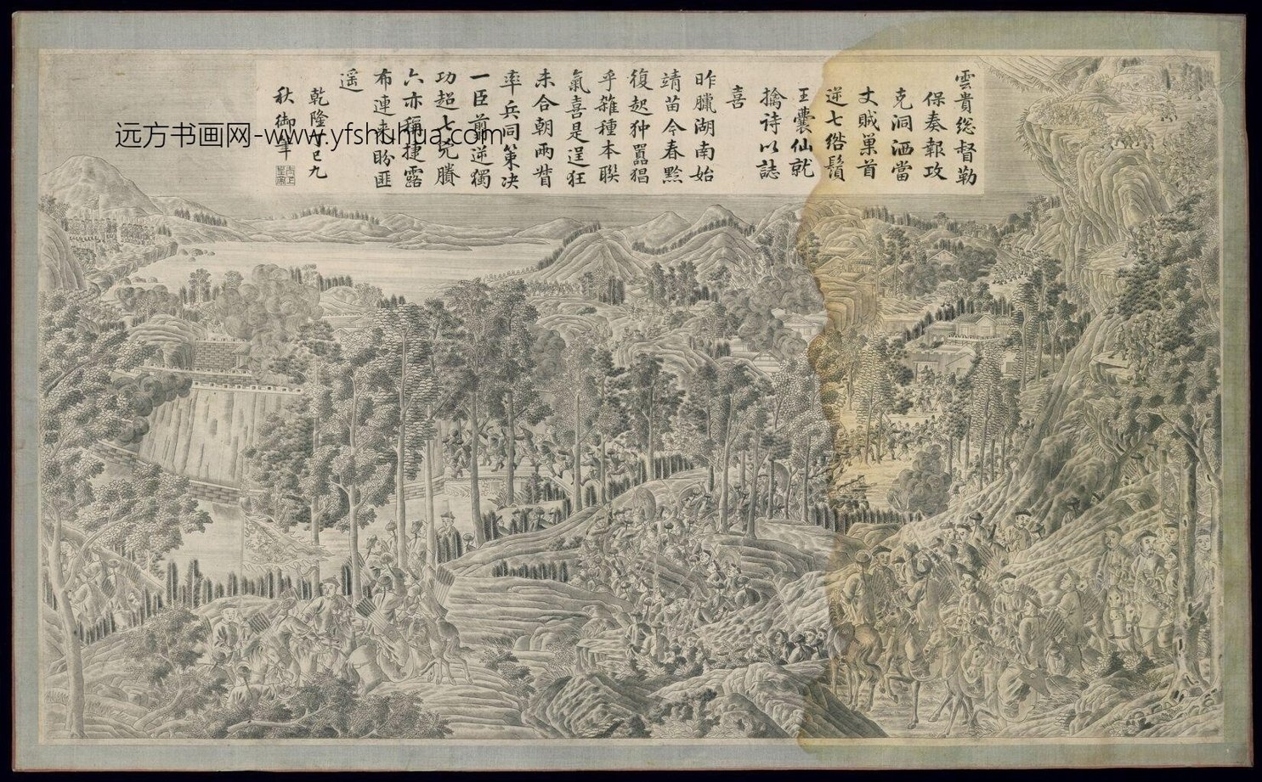 雲貴總督勒
保奏報攻
克洞洒當
丈賊巢首
逆七绺鬚
王囊仙就
擒詩以誌
喜
昨臘湖南始
靖苗今春黔
復起狆嚚猖
乎雜種本聯
氣喜是逞狂
未合朝兩
率兵同策决
一臣翦逆獨
功超七賸
六亦稱捷露
布連来盼匪
遥
乾隆丁巳九
秋御筆
远方书画网-www.yfshuhua.com